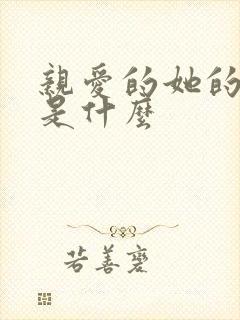 親愛的她的
是什麼
若善裟